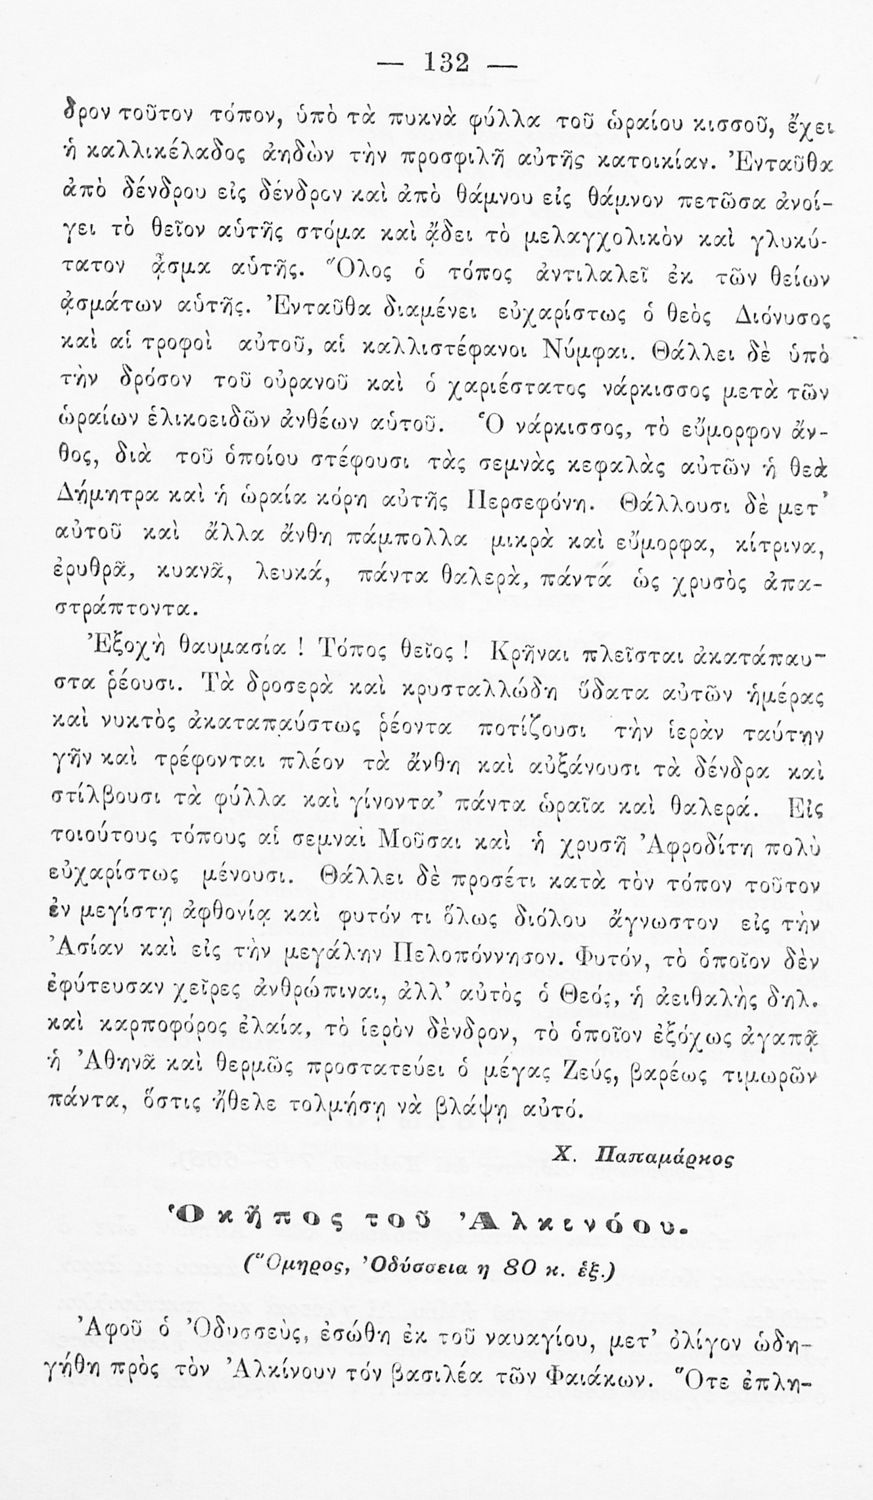 — 132 —
δρον τοῦτον τόπον, ὑπὸ τὰ πυκνὰ φύλλα τοῦ ὡραίου κισσοῦ, ἔχει
ἡ καλλικέλαδος ἀηδὼν τὴν προσφιλῆ αὑτῆς κατοικίαν. Ἐνταῦθα
ἀπὸ δένδρου εἰς δένδρον καὶ ἀπὸ θάμνου εἰς θάμνον πετῶσα ἀνοί-
γει τὸ θεῖον αὑτῆς στόμα καὶ ᾄδει τὸ μελαγχολικὸν καὶ γλυκύ-
τατον ᾆσμα αὑτῆς. Ὅλος ὁ τόπος ἀντιλαλεῖ ἐκ τῶν θείων
ᾀσμάτων αὑτῆς. Ἐνταῦθα διαμένει εὐχαρίστως ὁ θεὸς Διόνυσος
καὶ αἱ τροφοὶ αὐτοῦ, αἱ καλλιστέφανοι Νύμφαι. Θάλλει δὲ ὑπὸ
τὴν δρόσον τοῦ οὐρανοῦ καὶ ὁ χαριέστατος νάρκισσος μετὰ τῶν
ὡραίων ἑλικοειδῶν ἀνθέων αὑτοῦ. Ὁ νάρκισσος, τὸ εὔμορφον ἄν-
θος, διὰ τοῦ ὁποίου στέφουσι τὰς σεμνὰς κεφαλὰς αὑτῶν ἡ θεὰ
Δήμητρα καὶ ἡ ὡραία κόρη αὐτῆς Περσεφόνη. Θάλλουσι δὲ μετ'
αὐτοῦ καὶ ἄλλα ἄνθη πάμπολλα μικρὰ καὶ εὔμορφα, κίτρινα,
ἐρυθρᾶ, κυανᾶ, λευκά, πάντα θαλερὰ, πάντα ὡς χρυσὸς ἀπα-
στράπτοντα.
Ἐξοχὴ θαυμασία ! Τόπος θεῖος ! Κρῆναι πλεῖσται ἀκατάπαυ-
στα ῥέουσι. Τὰ δροσερὰ καὶ κρυσταλλώδη ὕδατα αὐτῶν ἡμέρας
καὶ νυκτὸς ἀκαταπαύστως ῥέοντα ποτίζουσι τὴν ἱερὰν ταύτην
γῆν καὶ τρέφονται πλέον τὰ ἄνθη καὶ αὐξάνουσι τὰ δένδρα καὶ
στίλβουσι τὰ φύλλα καὶ γίνοντα' πάντα ὡραῖα καὶ θαλερά. Εἰς
τοιούτους τόπους αἱ σεμναὶ Μοῦσαι καὶ ἡ χρυσῆ Ἀφροδίτη πολὺ
εὐχαρίστως μένουσι. Θάλλει δὲ προσέτι κατὰ τὸν τόπον τοῦτον
ἐν μεγίστῃ ἀφθονίᾳ καὶ φυτόν τι ὅλως διόλου ἄγνωστον εἰς τὴν
Ἀσίαν καὶ εἰς τὴν μεγάλην Πελοπόννησον. Φυτόν, τὸ ὁποῖον δὲν
ἐφύτευσαν χεῖρες ἀνθρώπιναι, ἀλλ' αὐτὸς ὁ Θεός, ἡ ἀειθαλὴς δηλ.
καὶ καρποφόρος ἐλαία, τὸ ἱερὸν δένδρον, τὸ ὁποῖον ἐξόχως ἀγαπᾷ
ἡ Ἀθηνᾶ καὶ θερμῶς προστατεύει ὁ μέγας Ζεύς, βαρέως τιμωρῶν
πάντα, ὅστις ἤθελε τολμήσῃ νὰ βλάψῃ αὐτό.
Χ. Παπαμάρκος
Ὁ κῆπος τοῦ Ἀλκινόου.
(Ὅμηρος, Ὀδύσσεια η 80 κ. ἑξ.)
Ἀφοῦ ὁ Ὀδυσσεὺς, ἐσώθη ἐκ τοῦ ναυαγίου, μετ' ὀλίγον ὡδη-
γήθη πρὸς τὸν Ἀλκίνουν τόν βασιλέα τῶν Φαιάκων. Ὅτε ἐπλη-